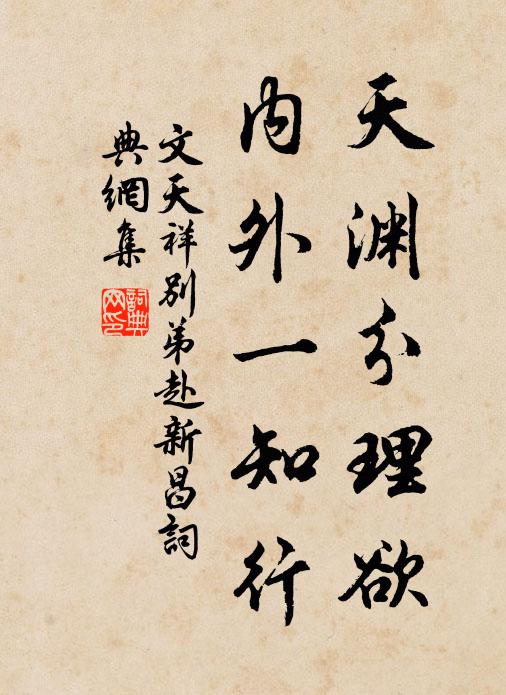 天渊分理欲
内外一知行
文天祥别弟赴新昌詞
典網集
詞典网印